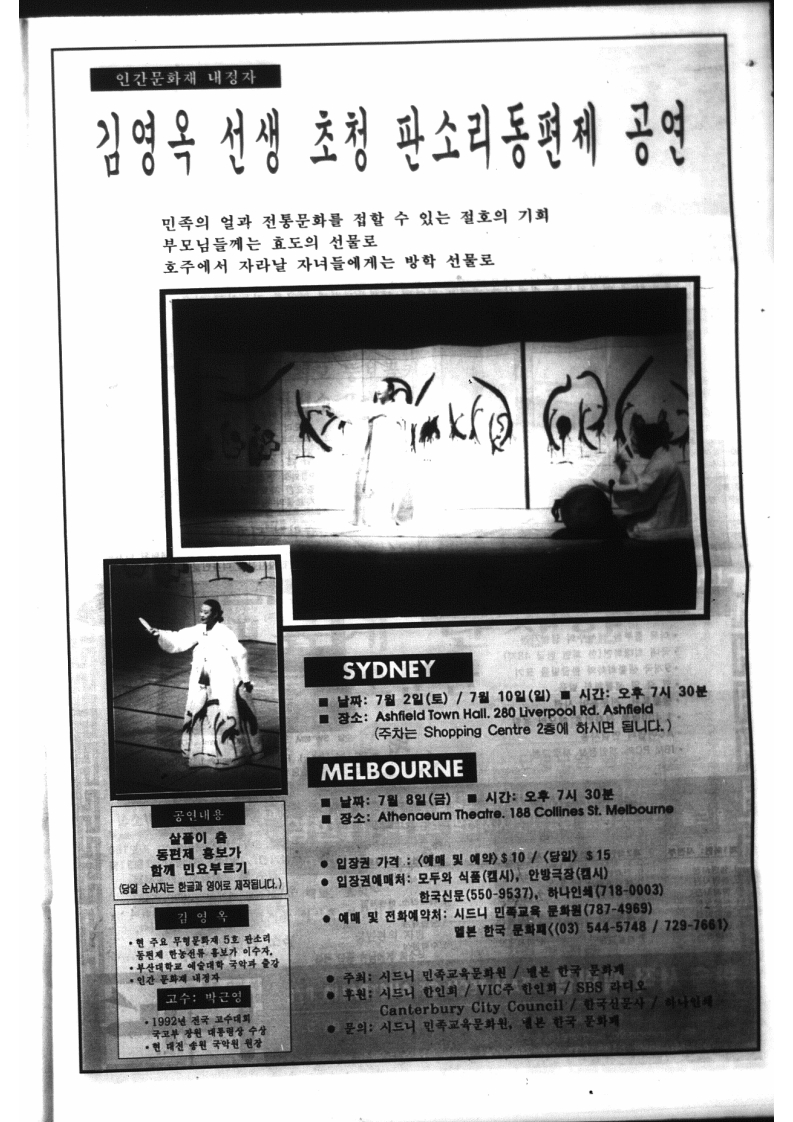 인간문화재 내정자
김영옥 선생 초청 판소리동편제 공연
민족의 얼과 전통문화를 접할 수 있는 절호의 기회
부모님들께는 효도의 선물로
호주에서 자라날 자녀들에게는 방학 선물로
SYDNEY
■ 날짜: 7월 2일(토) / 7월 10일(일) ■ 시간: 오후 7시 30분
■ 장소: Ashfield Town Hall. 280 Liverpool Rd. Ashfield
(주차는 Shopping Centre 2층에 하시면 됩니다.)
MELBOURNE
■ 날짜: 7월 8일(금) ■ 시간: 오후 7시 30분
■ 장소: Athenaeum Theatre. 188 Collines St. Melbourne
● 입장권 가격 : 〈예매 및 예약〉$10 / 〈당일〉 $15
● 입장권예매처: 모두와 식품(캠시), 안방극장(캠시)
한국신문(550-9537), 하나인쇄(718-0003)
● 예매 및 전화예약처: 시드니 민족교육 문화원(787-4969)
멜본 한국 문화패〈(03) 544-5748 / 729-7661〉
● 주최: 시드니 민족교육문화원 / 멜본 한국 문화패
● 후원: 시드니 한인회 / VIC주 한인회 / SBS 라디오
Canterbury City Council / 한국신문사 / 하나인쇄
● 문의: 시드니 민족교육문화원, 멜본 한국 문화패
공연내용
살풀이 춤
동편제 흥보가
함께 민요부르기
(당일 순서지는 한글과 영어로 제작됩니다.)
김 영 옥
• 현 주요 무형문화재 5호 판소리
동편제 한농선류 흥보가 이수자,
• 부산대학교 예술대학 국악과 출강
• 인간 문화재 내정자
고수: 박근영
• 1992년 전국 고수대회
국고부 장원 대통령상 수상
• 현 대전 송원 국악원 원장